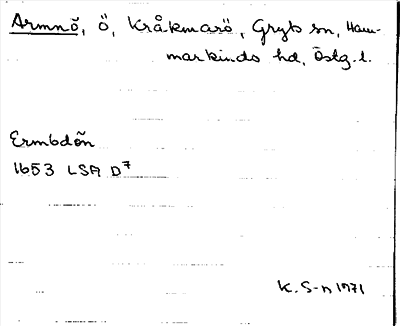 Armnö, ö, Kråkmarö, Gryts sn, Ham-
markinds hd, Östg. l.
Ermbdön
1653 LSA D7
K. S-n 1971